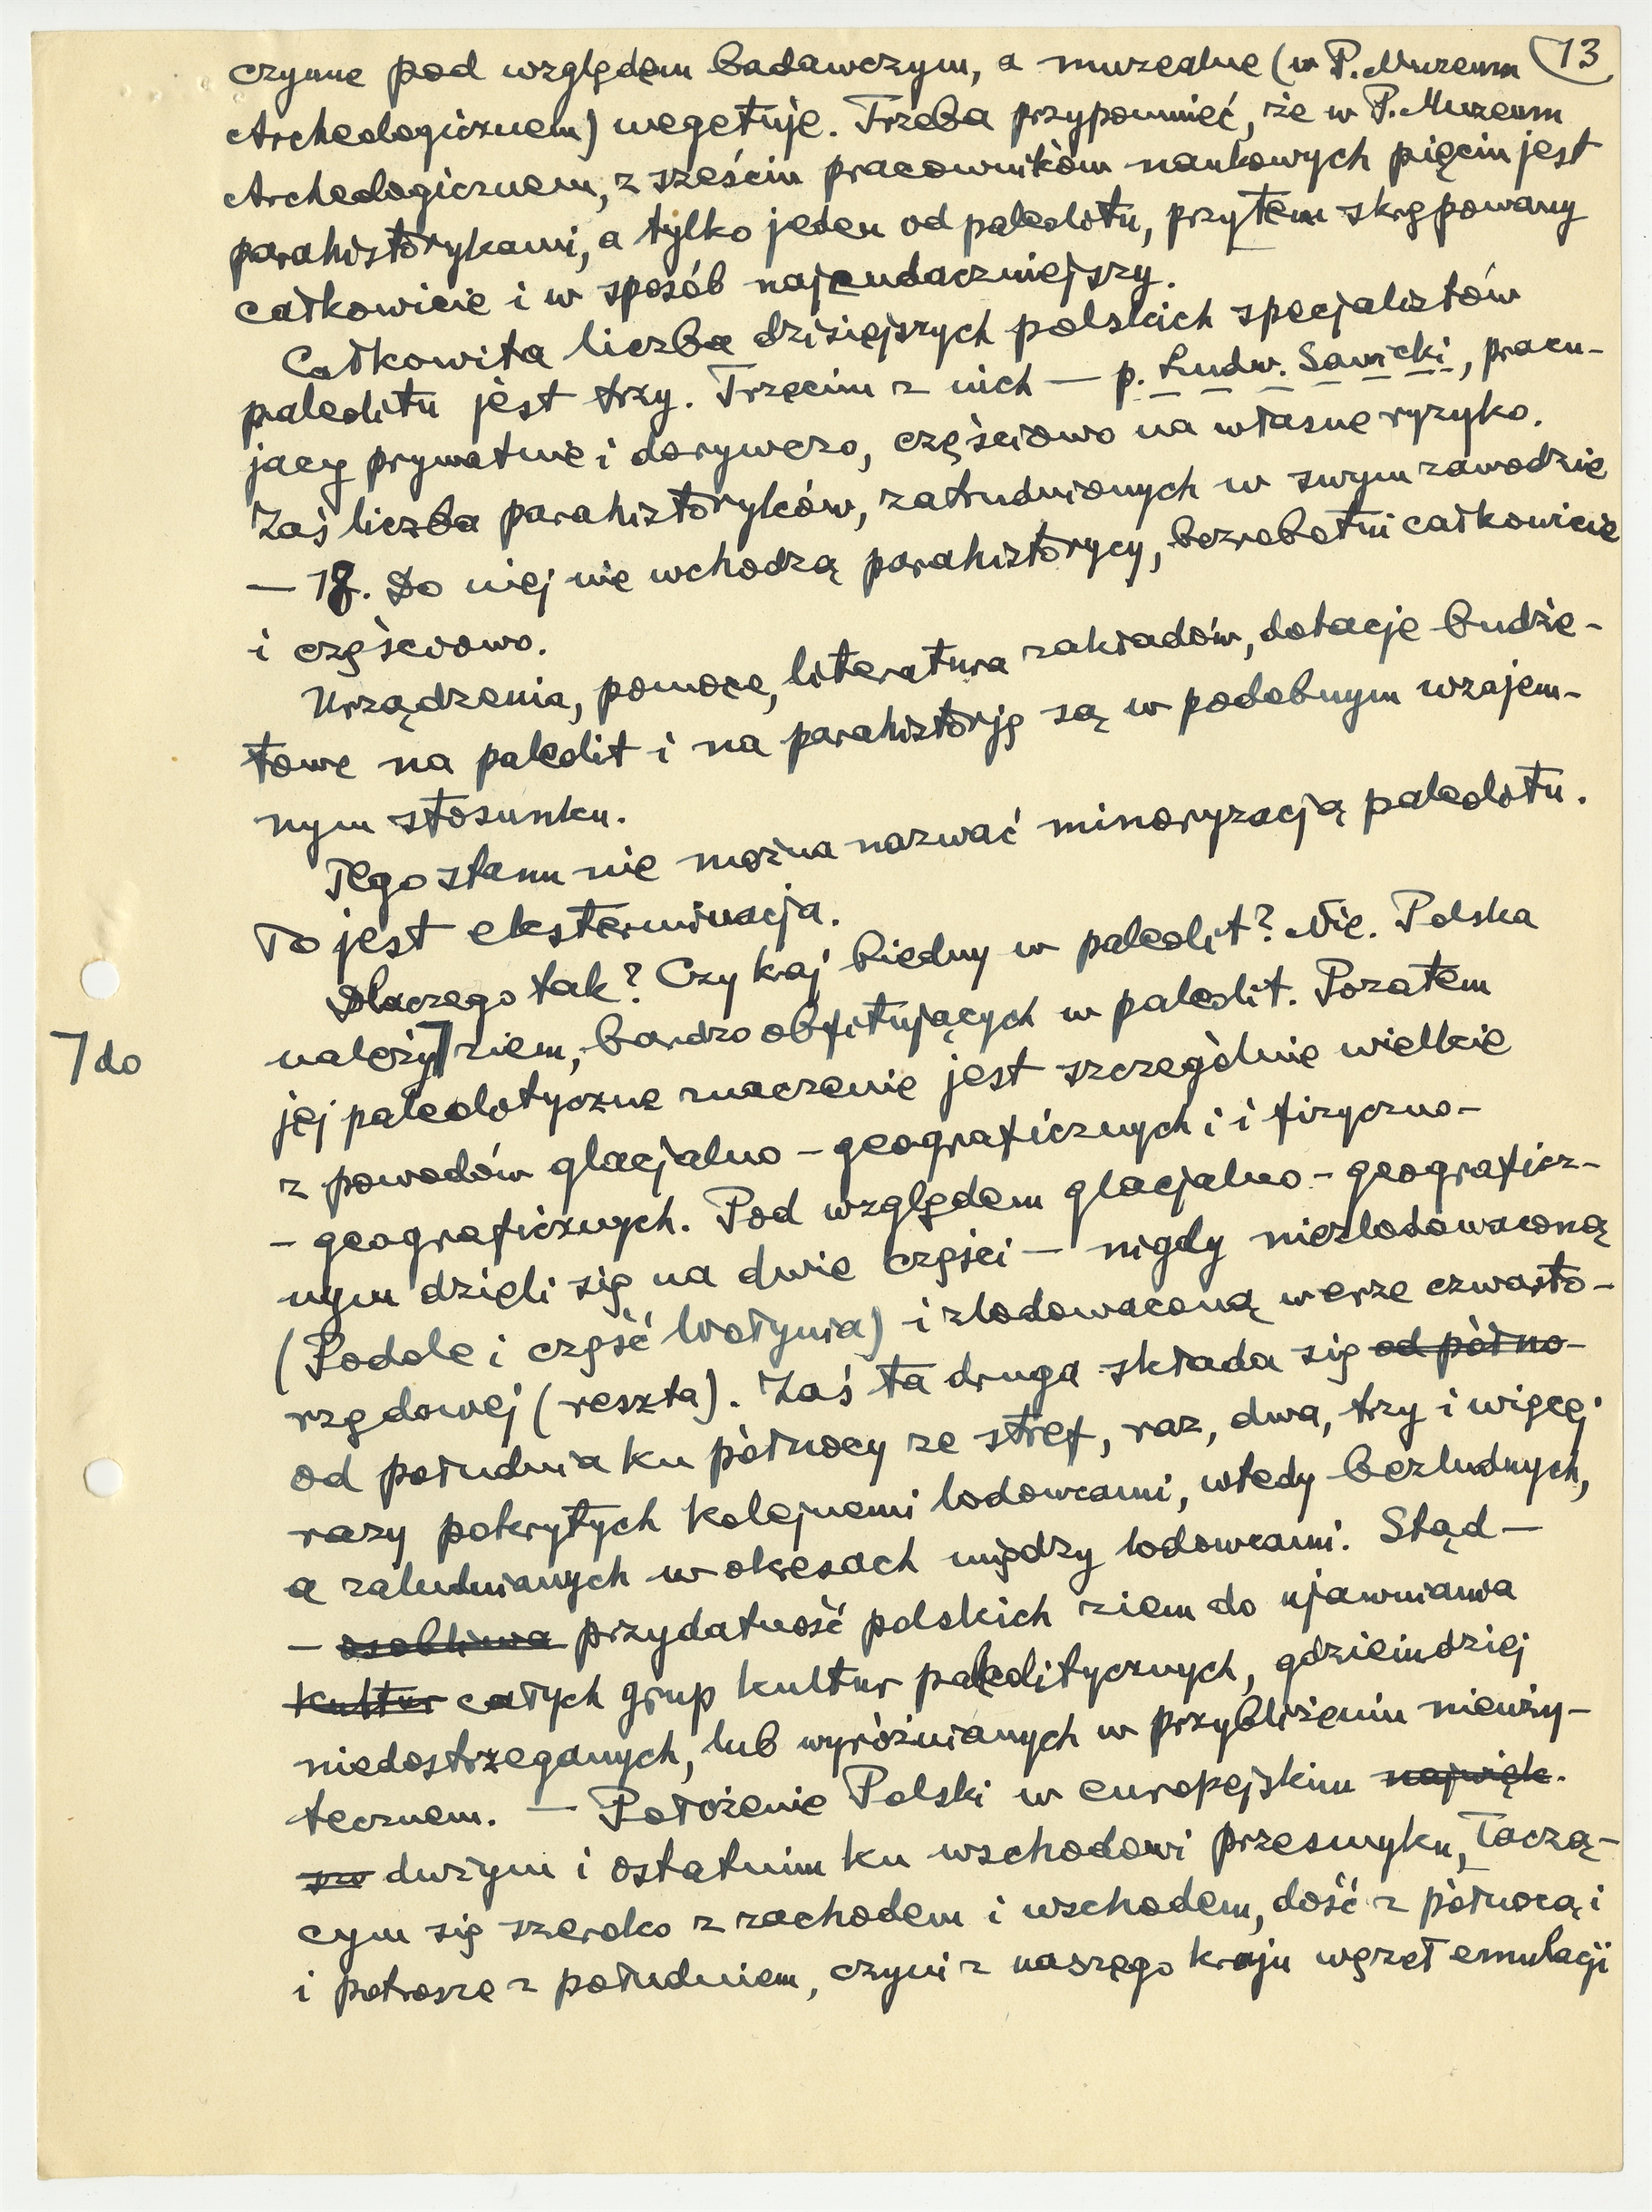 13
czynne pod względem badawczym, a muzealne (w P. Muzeum
Archeologicznem) wegetuje. Trzeba przypomnieć, że w P. Muzeum
Archeologicznem, z sześciu pracowników naukowych pięciu jest
parahistorykami, a tylko jeden od paleolitu, przytem skrępowany
całkowicie i w sposób najcudaczniejszy.
Całkowita liczba dzisiejszych polskich specjalistów
paleolitu jest trzy. Trzecim z nich — p. Ludw. Sawicki, pracu-
jący prywatnie i dorywczo, częściowo na własne ryzyko.
Zaś liczba parahistoryków, zatrudnionych w swym zawodzie
— 18. Do niej nie wchodzą parahistorycy, bezrobotni całkowicie
i częściowo.
Urządzenia, pomoce, literatura zakładów, dotacje budże-
towe na paleolit i na parahistorję są w podobnym wzajem-
nym stosunku.
Tego stanu nie można nazwać minoryzacją paleolitu.
To jest eksterminacja.
Dlaczego tak? Czy kraj biedny w paleolit? Nie. Polska
należy ⌉ ziem, bardzo obfitujących w paleolit. Pozatem
⌉ do
jej paleolityczne znaczenie jest szczególnie wielkie
z powodów glacjalno-geograficznych i i fizyczno-
-geograficznych. Pod względem glacjalno-geograficz-
nym dzieli się na dwie części — nigdy niezlodowaconą
(Podole i część Wołynia) i zlodowaconą w erze czwarto-
rzędowej (reszta). Zaś ta druga składa się od półno-
od południa ku północy ze stref, raz, dwa, trzy i więcej
razy pokrytych kolejnemi lodowcami, wtedy bezludnych,
a zaludnianych w okresach między lodowcami. Stąd —
— osobliwa przydatność polskich ziem do ujawniania
kultur całych grup kultur paleolitycznych, gdzieindziej
niedostrzeganych, lub wyróżnianych w przybliżeniu nieuży-
tecznem. — Położenie Polski w europejskim najwięk-
sze dużym i ostatnim ku wschodowi przesmyku, łączą-
cym się szeroko z zachodem i wschodem, dość z północą i
i potrosze z południem, czyni z naszego kraju węzeł emulacji